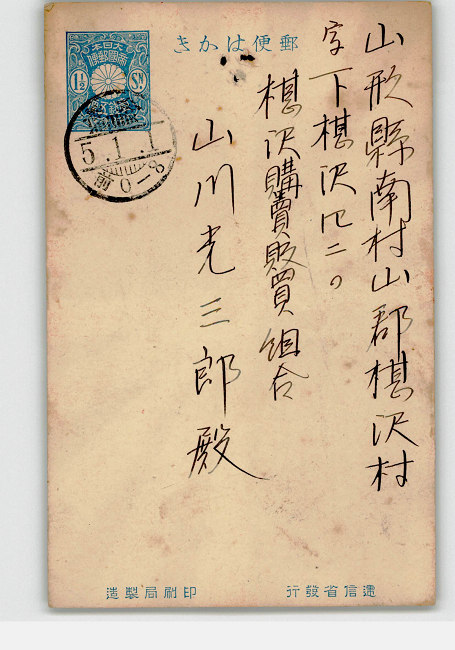 郵便はかき
大日本
帝國郵便
1½ Sn
5.1.1
前0-8
山形縣南村山郡椹沢村
字下椹沢四二の
椹沢購買販買組合
山川光三郎殿
遞信省發行
印刷局製造